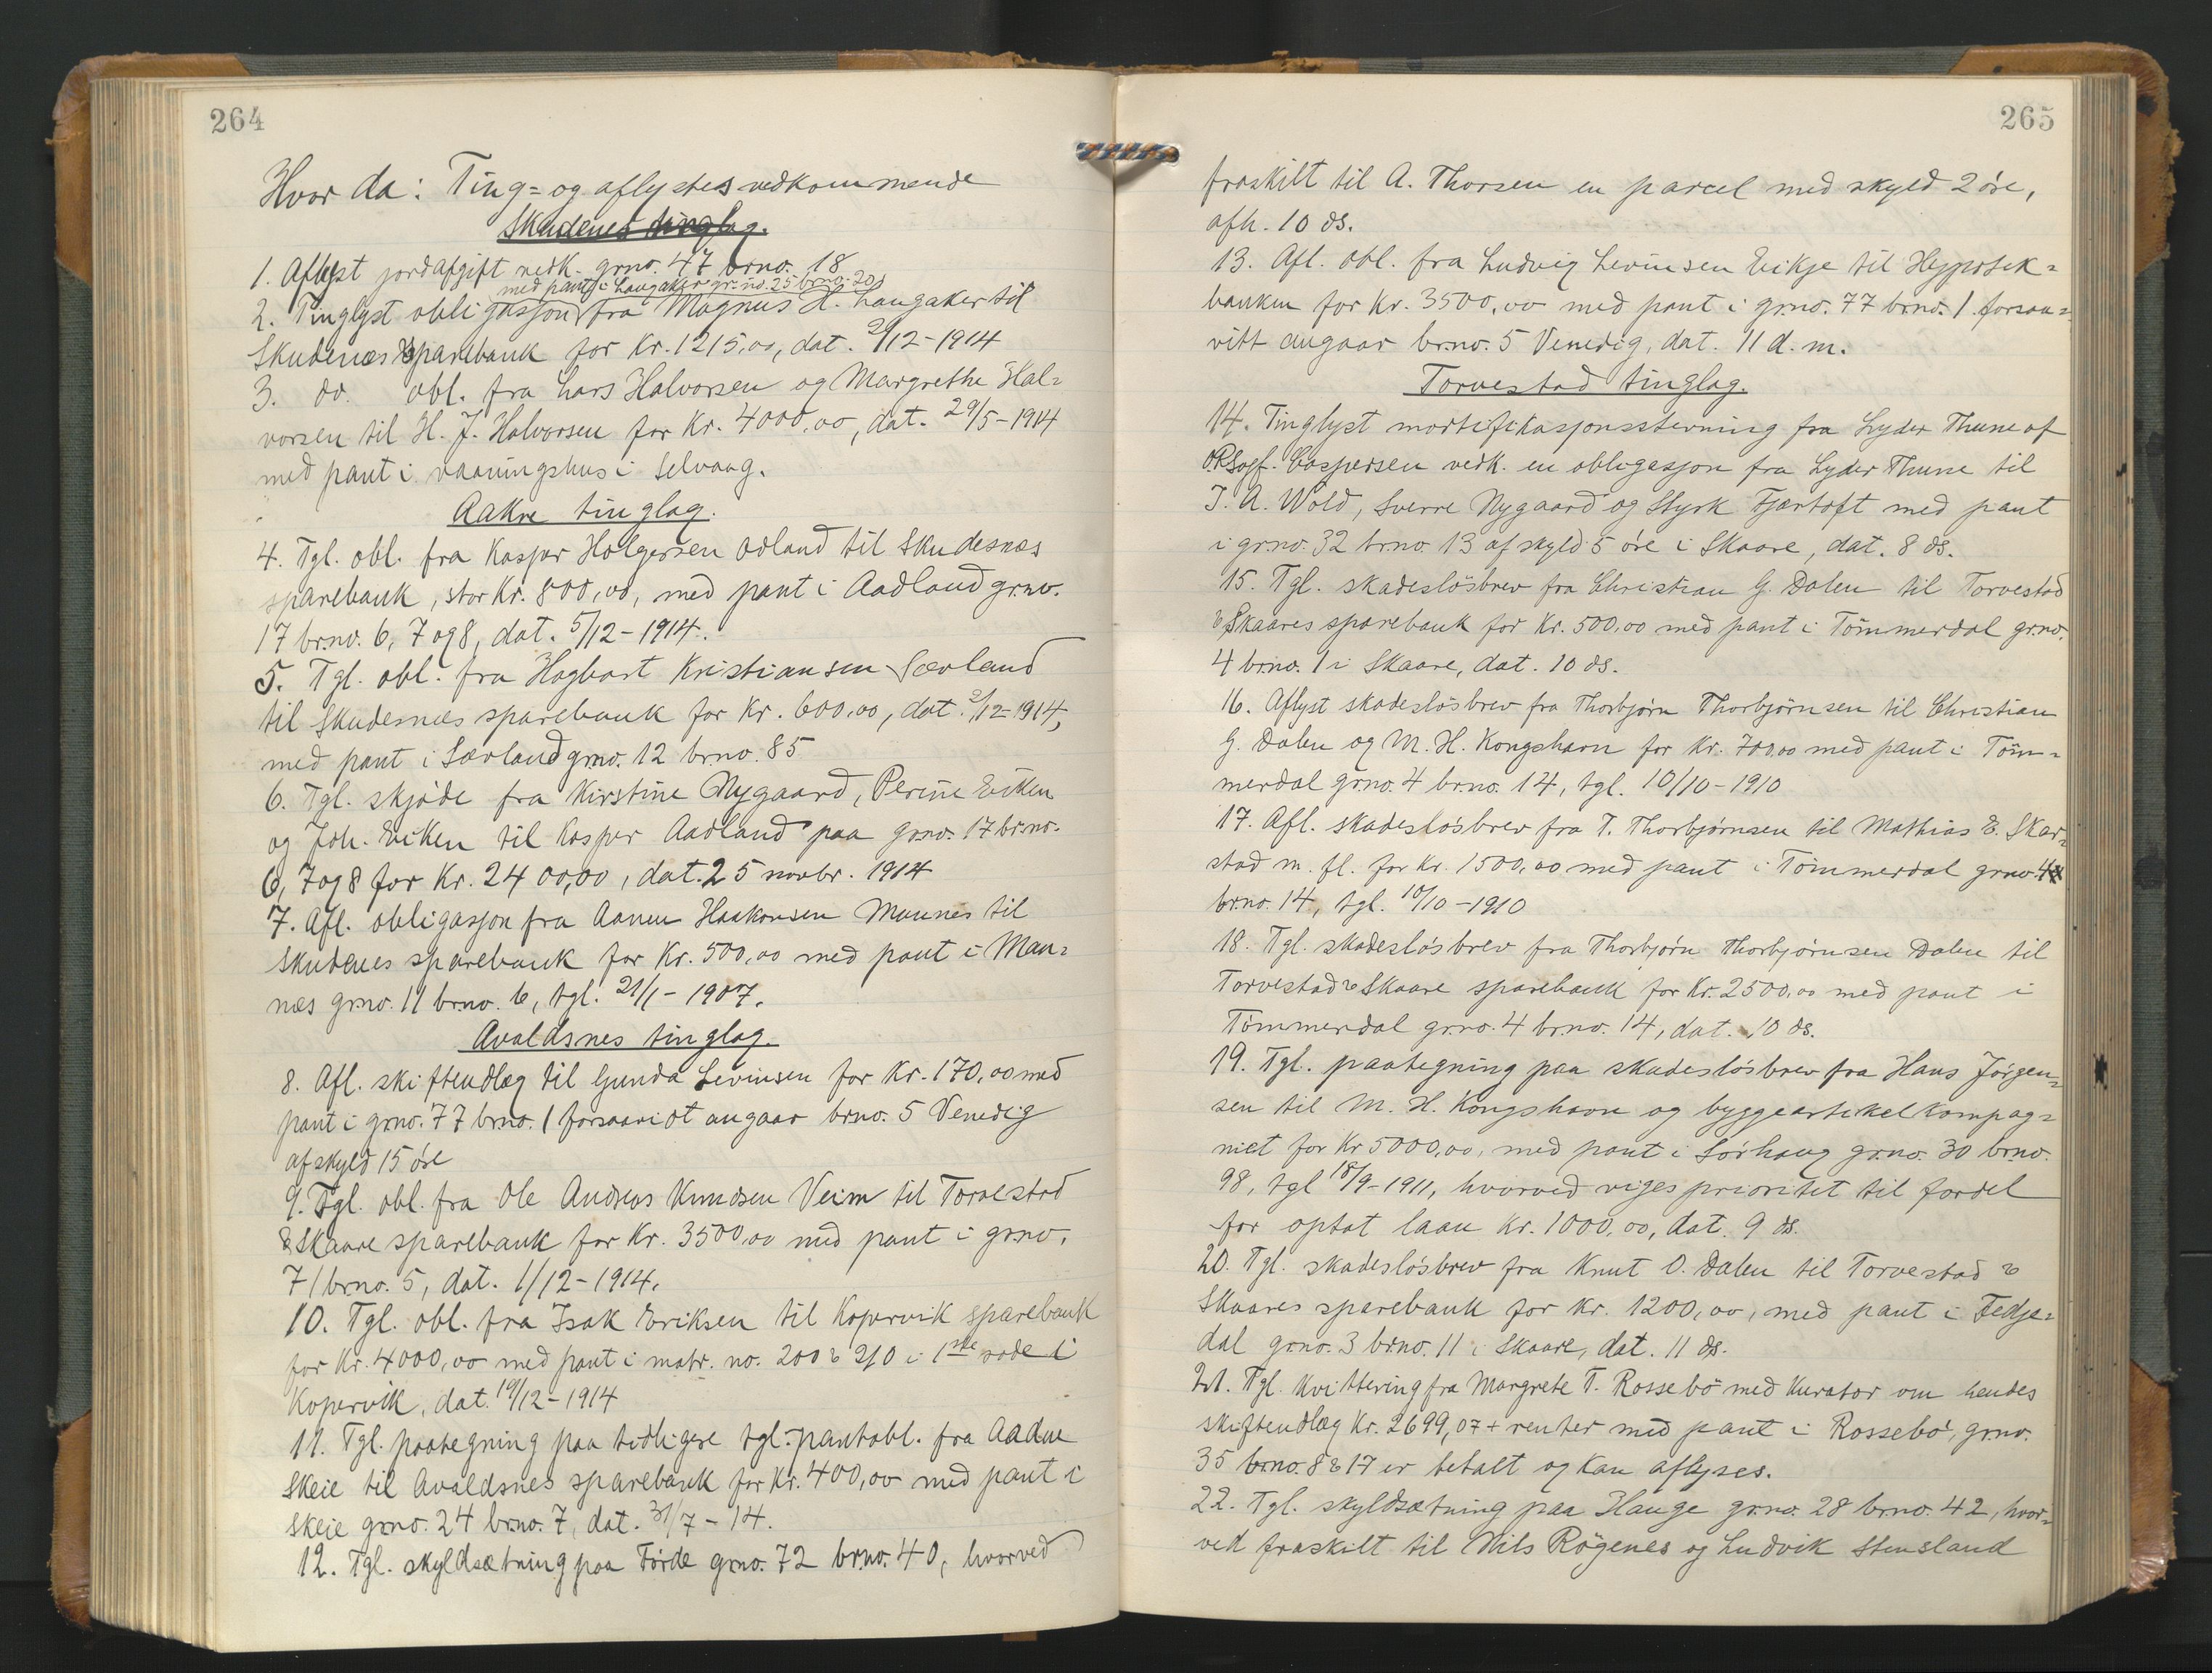 264
Hvor da: Ting= og aflystes vedkommende
Skudenes tinglag.
1. Aflyst jordafgift vedk. grno. 47 brno. 18
med pant i Langaker gr. no. 25 brno. 20
2. Tinglyst obligasjon fra Magnus H. Langaker til
Skudenes sparebank for Kr. 1215,00, dat. 2/12-1914
3. do. obl. fra Lars Halvorsen og Margrethe Hal=
vorsen til H. J. Halvorsen for Kr. 4000,00, dat. 29/5-1914
med pant i vaaningshus i Selvaag.
Aakre tinglag.
4. Tgl. obl. fra Kasper Holgersen Odland til Skudesnæs
sparebank, stor Kr. 800,00, med pant i Aadland grno.
17 brno. 6, 7 og 8, dat. 5/12-1914.
5. Tgl. obl. fra Hagbart Kristiansen Sævland
til Skudesnæs sparebank for Kr. 600,00, dat. 2/12-1914,
med pant i Sævland grno. 12 brno. 85
6. Tgl. skjøde fra Kirstine Nygaard, Perine Eiken
og Joh. Eiken til Kasper Aadland paa grno. 17 brno.
6, 7 og 8 for Kr. 2400,00, dat. 25 novbr. 1914
7. Afl. obligasjon fra Aanen Haakonsen Munnes til
Skudenes sparebank for Kr. 500,00 med pant i Man=
næs grno. 11 brno. 6, tgl. 21/1-1907.
Avaldsnes tinglag.
8. Afl. skifteudlæg til Gunda Levinsen for Kr. 170,00 med
pant i grno. 77 brno. 1 forsaavidt angaar brno. 5 Venedig
af skyld 15 øre
9. Tgl. obl. fra Ole Andreas Knudsen Veim til Torvestad
& Skaare sparebank for Kr. 3500,00 med pant i grno.
71 brno. 5, dat. 1/12-1914.
10. Tgl. obl. fra Isak Eriksen til Kopervik sparebank
for Kr. 4000,00 med pant i matr. no. 200 & 210 i 1ste rode i
Kopervik, dat. 19/12-1914
11. Tgl. paategning paa tidligere tgl. pantobl. fra Aadne
Skeie til Avaldsnes sparebank for Kr. 400,00 med pant i
Skeie grno. 24 brno. 7, dat. 31/7-14.
12. Tgl. skyldsætning paa Førde grno. 72 brno. 40, hvorved
265
fraskilt til A. Thorsen en parcel med skyld 2 øre,
afh. 10 ds.
13. Afl. obl. fra Ludvig Levinsen Eikje til Hypotek=
banken for Kr. 3500,00 med pant i grno. 77 brno. 1 forsaa=
vitt angaar brno. 5 Venedig, dat. 11 d. m.
Torvestad tinglag.
14. Tinglyst mortifikasjonsstevning fra Lyder Thune af
O.R.Sagf. Caspersen vedk. en obligasjon fra Lyder Thune til
T. A. Wold, Sverre Nygaard og Styrk Fjærtoft med pant
i grno. 32 brno. 13 af skyld 5 øre i Skaare, dat. 8 ds.
15. Tgl. skadesløsbrev fra Christian G. Dalen til Torvestad
& Skaares sparebank for Kr. 500,00 med pant i Tømmerdal grno.
4 brno. 1 i Skaare, dat. 10 ds.
16. Aflyst skadesløsbrev fra Thorbjørn Thorbjørnsen til Christian
G. Dalen og M. H. Kongshavn for Kr. 700,00 med pant i Tøm=
merdal grno. 4 brno. 14, tgl. 10/10-1910
17. Afl. skadesløsbrev fra T. Thorbjørnsen til Mathias E. Skar=
stad m. fl. for Kr. 1500,00 med pant i Tømmerdal grno. 4
brno. 14, tgl. 10/10-1910
18. Tgl. skadesløsbrev fra Thorbjørn Thorbjørnsen Dalen til
Torvestad & Skaare sparebank for Kr. 2500,00 med pant i
Tømmerdal grno. 4 brno. 14, dat. 10 ds.
19. Tgl. paategning paa skadesløsbrev fra Hans Jørgen=
sen til M. H. Kongshavn og byggeartikelkompag=
niet for Kr 5000,00, med pant i Sørhaug grno. 30 brno.
98, tgl 18/9-1911, hvorved viges prioritet til fordel
for optat laan Kr. 1000,00, dat. 9 ds.
20. Tgl. skadesløsbrev fra Knut O. Dalen til Torvestad &
Skaares sparebank for Kr. 1200,00, med pant i Fedje=
dal grno. 3 brno. 11 i Skaare, dat. 11 ds.
21. Tgl. Kvittering fra Margrete T. Rossebø med kurator om hendes
skifteudlæg Kr. 2699,07 + renter med pant i Rossebø, grno.
35 brno. 8 & 17 er betalt og kan aflyses.
22. Tgl. skyldsætning paa Hauge grno. 28 brno. 42, hvor=
ved fraskilt til Nils Røgenes og Ludvik Stensland